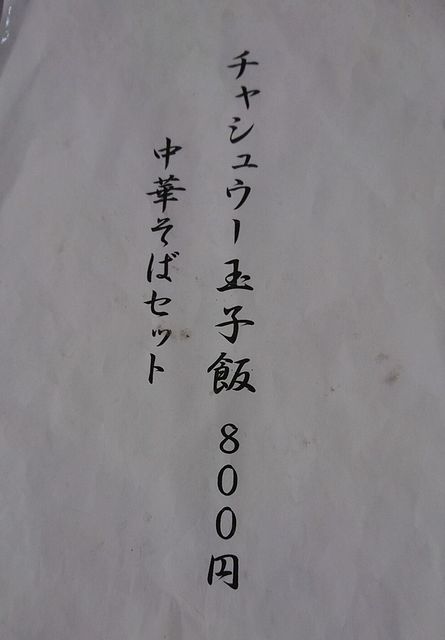 チャシュウー玉子飯 800円
中華そばセット